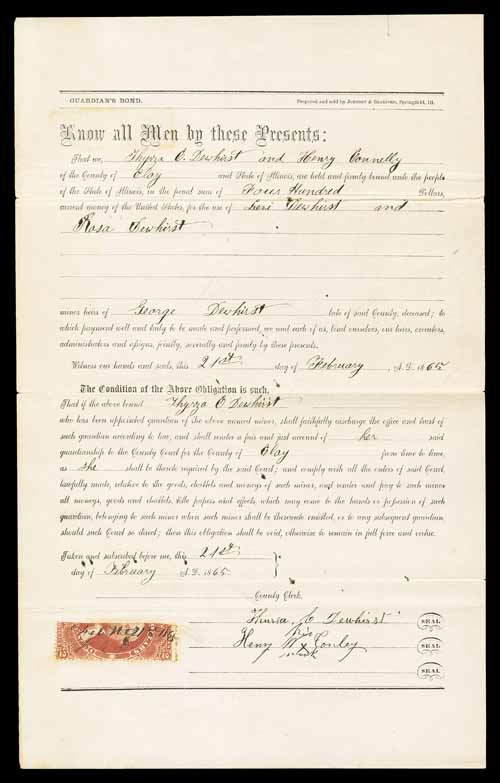 GUARDIAN'S BOND.
Prepared and sold by Johnson & Bradford, Springfield, Ill.
Know all Men by these Presents:
That we, Thyrza C. Dewhirst and Henry Connelly
of the County of Clay and State of Illinois, are held and firmly bound unto the people
of the State of Illinois, in the penal sum of Four Hundred Dollars,
current money of the United States, for the use of Levi Dewhirst and
Rosa Dewhirst
minor heirs of George Dewhirst late of said County, deceased; to
which payment well and truly to be made and performed, we and each of us, bind ourselves, our heirs, executors,
administrators and assigns, jointly, severally and firmly by these presents.
Witness our hands and seals, this 21st day of February A.D. 1865
The Condition of the Above Obligation is such,
That if the above bound Thyrza C Dewhirst
who has been appointed guardian of the above named minor, shall faithfully discharge the office and trust of
such guardian according to law, and shall render a fair and just account of her said
guardianship to the County Court for the County of Clay from time to time,
as she shall be thereto required by the said Court; and comply with all the orders of said Court,
lawfully made, relative to the goods, chattels and moneys of such minor, and render and pay to such minor
all moneys, goods and chattels, title papers and effects, which may come to the hands or possession of such
guardian, belonging to such minor when such minor shall be thereunto entitled, or to any subsequent guardian
should such Court so direct; then this obligation shall be void, otherwise to remain in full force and virtue.
Taken and subscribed before me, this 21st
day of February A.D. 1865
County Clerk.
Thirza C Dewhirst SEAL
his
Henry x Conley SEAL
mark
SEAL